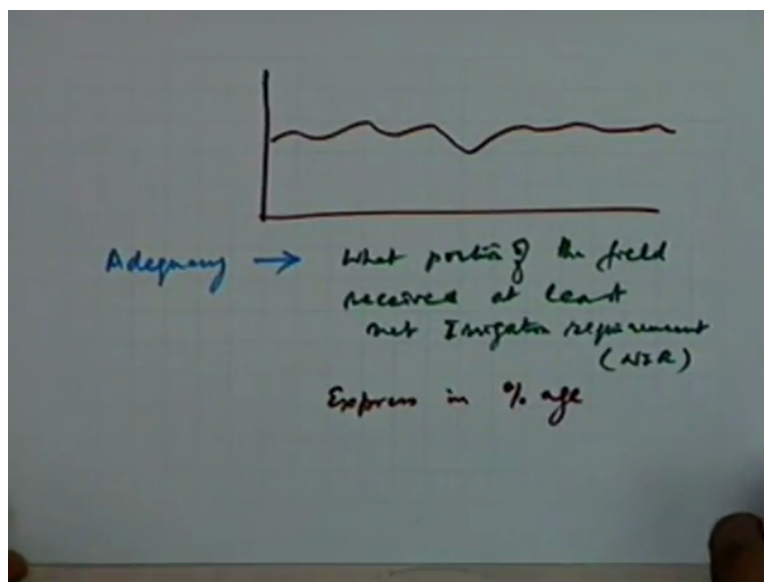 Adequacy → What portion of the field
received at least
net Irrigation requirement
(NIR)
Express in % age